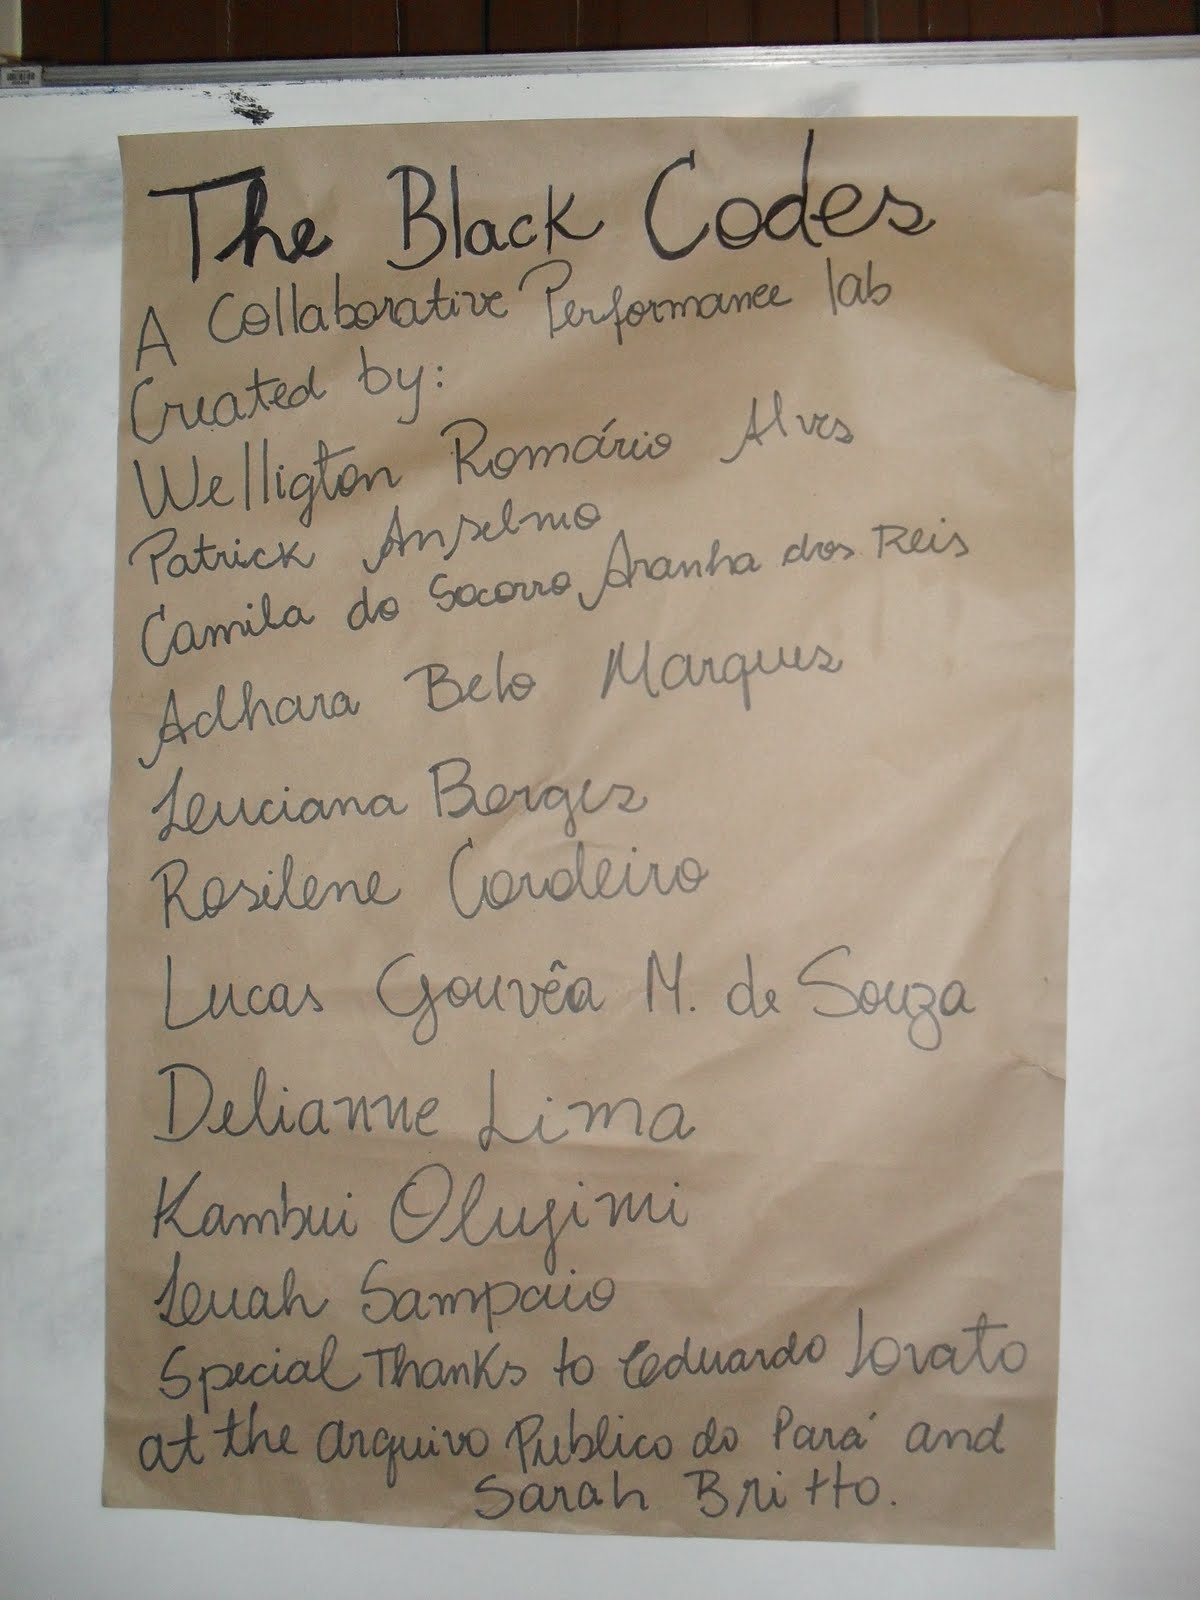 The Black Codes
A Collaborative Performance lab
Created by:
Welligton Romário Alves
Patrick Anselmo
Camila do Socorro Aranha dos Reis
Adhara Belo Marques
Luciana Borges
Rosilene Cordeiro
Lucas Gouvêa M. de Souza
Delianne Lima
Kambui Olujimi
Luah Sampaio
Special Thanks to Eduardo Lovato
at the arquivo Publico do Pará and
Sarah Britto.